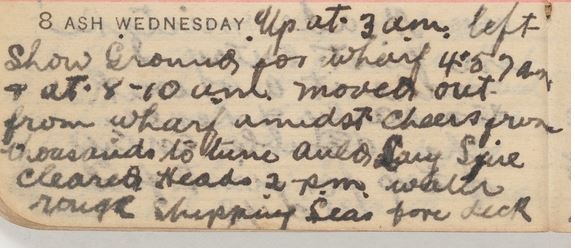 8 ASH WEDNESDAY. Up at 3 am. left
Show Grounds for wharf 4.57 am
& at 8-10 a.m. moved out
from wharf amidst cheers from
thousands to tune Auld Lang Sine
Cleared Heads 2 p.m. water
rough Shipping Seas fore deck